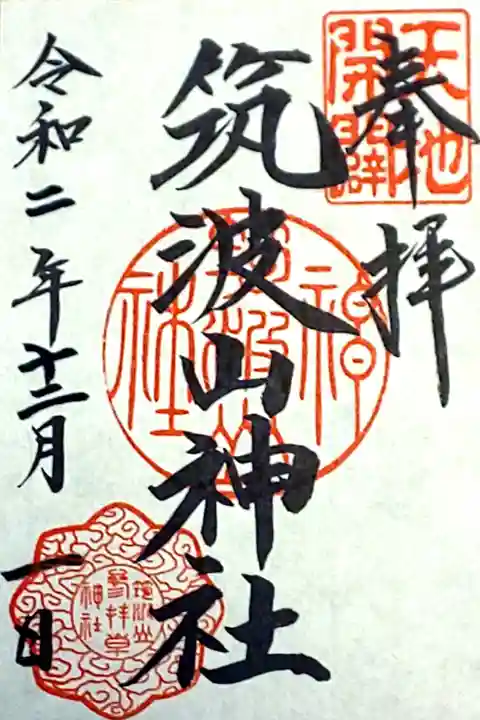 奉拝
天地
開闢
筑波山神社
筑波山
神社
令和二年十二月
一日
筑波山
参拝章
神社